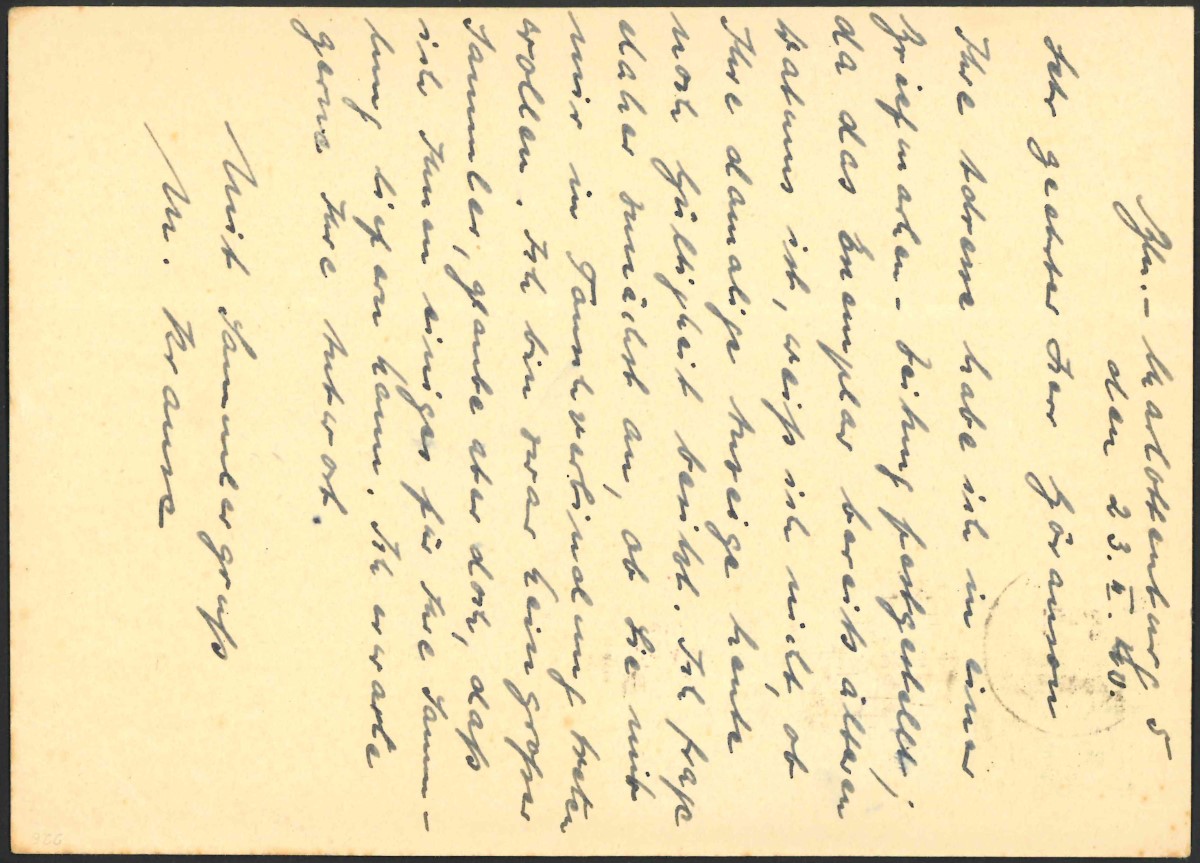 Bln.- Charlottenburg 5
den 23. II. 40.
Sehr geehrter Herr Göranson
Ihre Adresse habe ich in einer
Briefmarken-Zeitung festgestellt,
da das Exemplar bereits älteren
Datums ist, weiß ich nicht, ob
Ihre damalige Anzeige heute
noch Gültigkeit besitzt. Ich frage
daher zunächst an, ob Sie mit
mir in Tauschverbindung treten
wollen. Ich bin zwar kein großer
Sammler, glaube aber doch, daß
ich Ihnen einiges für Ihre Samm-
lung liefern kann. Ich erwarte
gerne Ihre Antwort.
Mit Sammlergruß
M. Krause
926